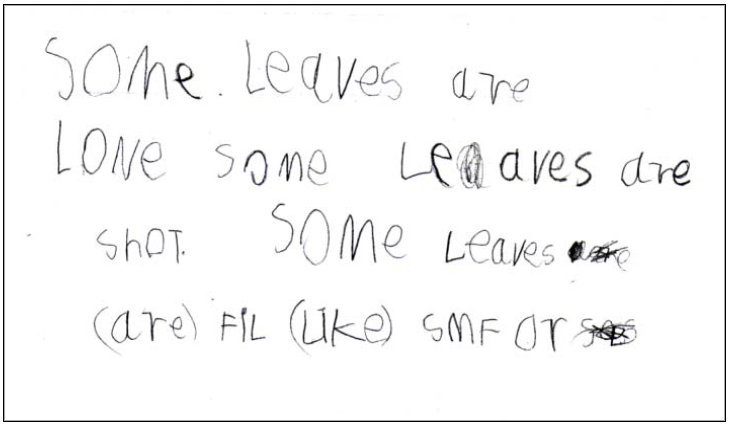 SOMe. Leaves are
LONe some Leaves are
ShOT. SOMe Leaves
(are) FIL (Like) SMF Or